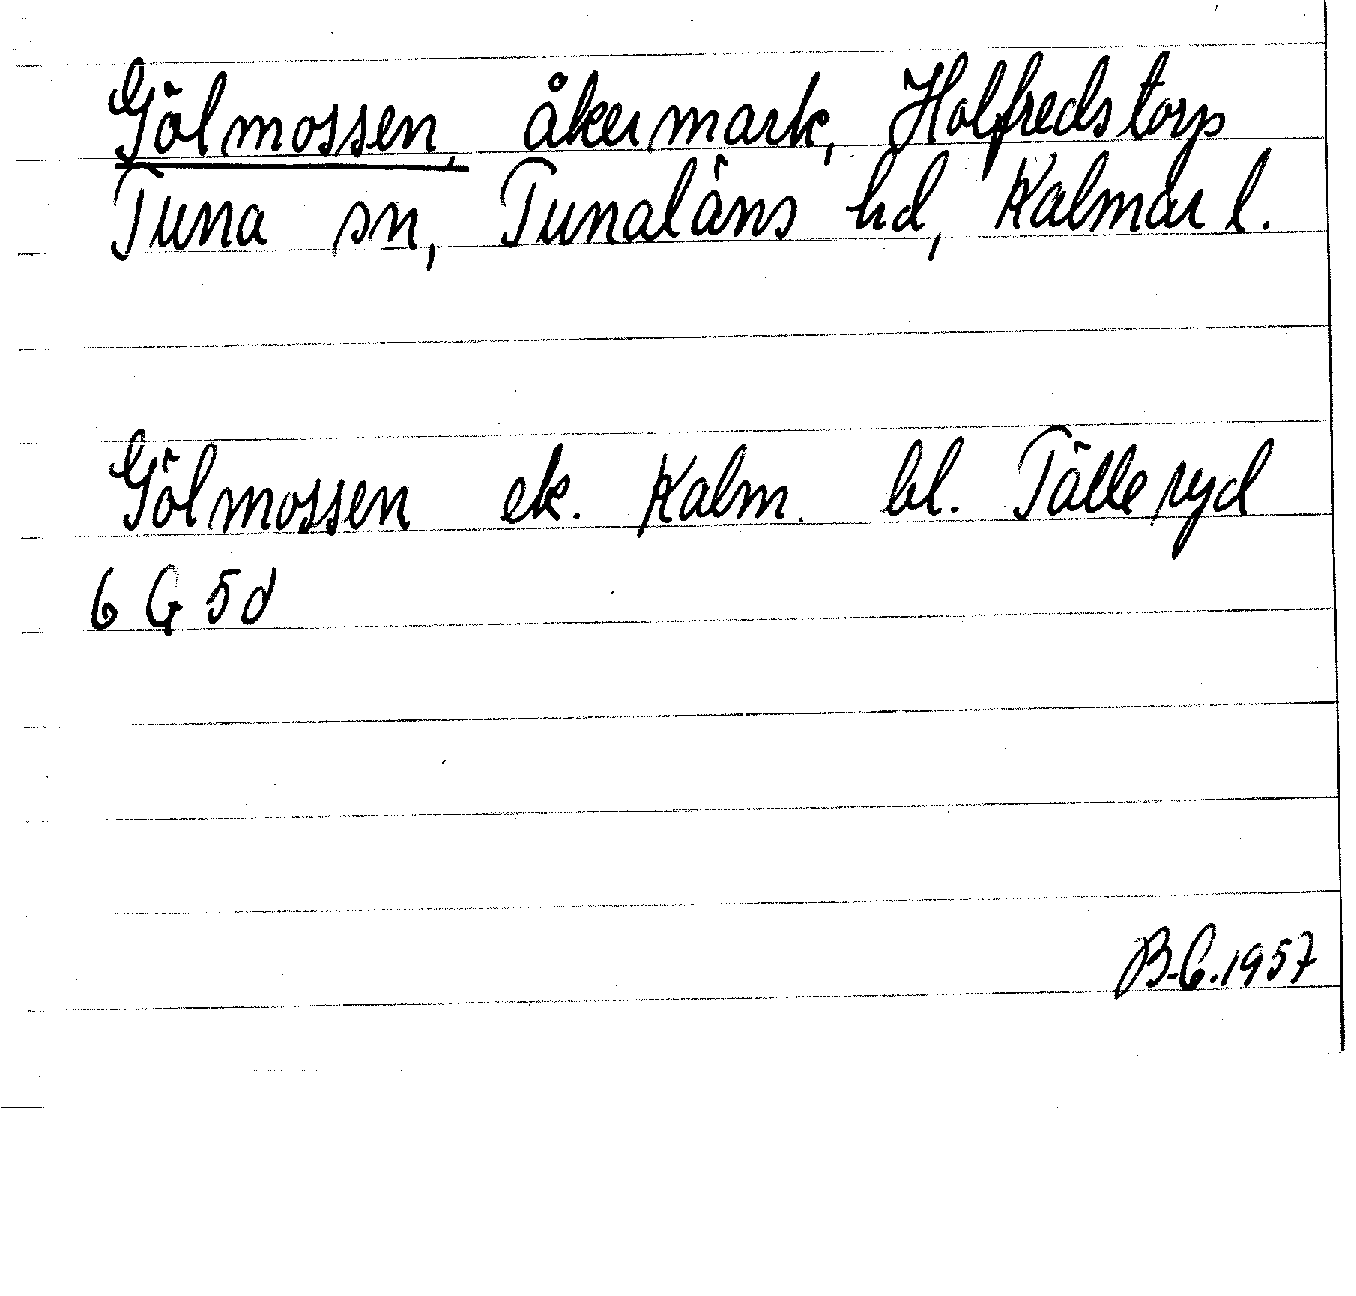 Gölmossen, åkermark, Holfredstorp
Tuna sn, Tunaläns hd, Kalmar l.
Gölmossen ek. Kalm. bl. Tälleryd
6 G 5d
B-C.1957